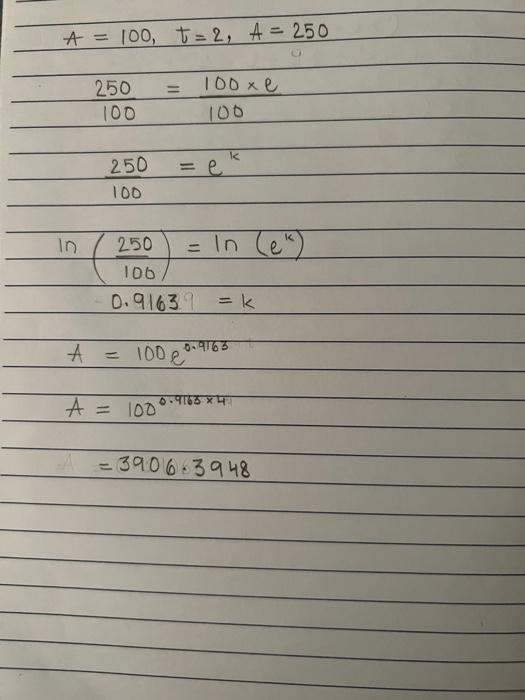 A = 100, t = 2, A = 250
250/100 = 100 × e/100
250/100 = e^k
ln (250/100) = ln (e^k)
0.91639 = k
A = 100e^0.9163
A = 100^0.9163×4
A = 3906.3948